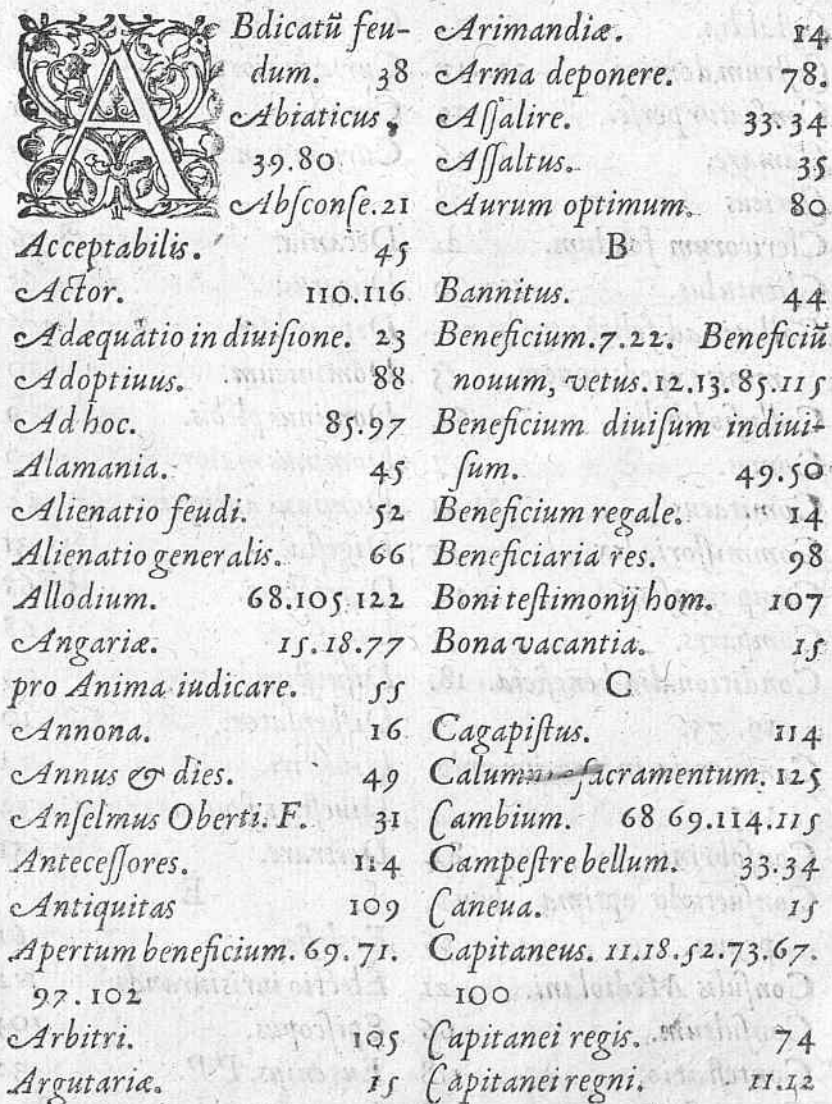 ABdicatū feu-
dum. 38
Abiaticus,
39.80
Abſconſe.21
Acceptabilis. 45
Actor. 110.116
Adæquatio in diuiſione. 23
Adoptiuus. 88
Ad hoc. 85.97
Alamania. 45
Alienatio feudi. 52
Alienatio generalis. 66
Allodium. 68.105.122
Angariæ. 15.18.77
pro Anima iudicare. 55
Annona. 16
Annus & dies. 49
Anſelmus Oberti. F. 31
Anteceſſores. 114
Antiquitas 109
Apertum beneficium. 69.71.
97.102
Arbitri. 105
Argutariæ. 15
Arimandiæ. 14
Arma deponere. 78.
Aſſalire. 33.34
Aſſaltus. 35
Aurum optimum. 80
B
Bannitus. 44
Beneficium.7.22. Beneficiū
nouum, vetus.12.13.85.115
Beneficium diuiſum indiui-
ſum. 49.50
Beneficium regale. 14
Beneficiaria res. 98
Boni teſtimonij hom. 107
Bona vacantia. 15
C
Cagapiſtus. 114
Calumniæ ſacramentum. 125
Cambium. 68 69.114.115
Campeſtre bellum. 33.34
Caneua. 15
Capitaneus. 11.18.52.73.67.
100
Capitanei regis. 74
Capitanei regni. 11.12